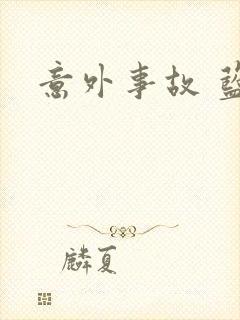 意外事故
麟夏